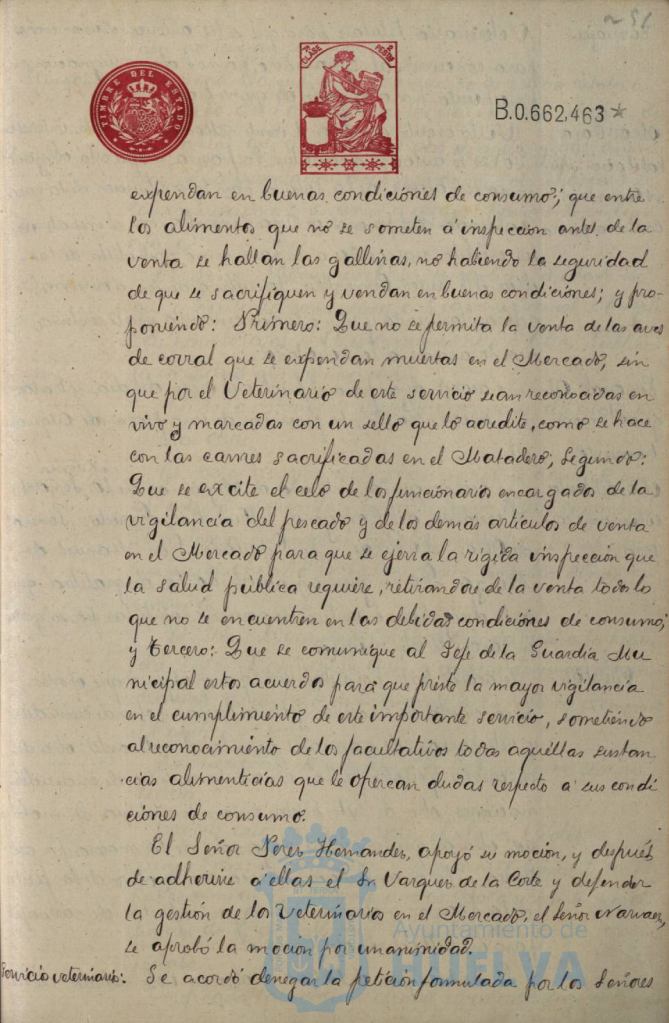 251
TIMBRE DEL ESTADO
CLASE
B.0.662.463*
expendan en buenas condiciones de consumo; que entre
los alimentos que no se someten á inspeccion antes de la
venta se hallan las gallinas, no habiendo la seguridad
de que se sacrifiquen y vendan en buenas condiciones; y pro-
poniendo: Primero: Que no se permita la venta de las aves
de corral que se expendan muertas en el Mercado, sin
que por el Veterinario de este servicio sean reconocidas en
vivo y marcadas con un sello que lo acredite, como se hace
con las carnes sacrificadas en el Matadero; Segundo:
Que se excite el celo de los funcionarios encargados de la
vigilancia del pescado y de los demás articulos de venta
en el Mercado para que se ejerza la rigida inspección que
la salud pública requiere, retirandose de la venta todo lo
que no se encuentren en las debidas condiciones de consumo;
y Tercero: Que se comunique al Jefe de la Guardia Mu
nicipal estos acuerdos para que preste la mayor vigilancia
en el cumplimiento de este importante servicio, sometiendo
al reconocimiento de los facultativos todas aquellas sustan
cias alimenticias que le ofrezcan dudas respecto á sus condi
ciones de consumo.
El Señor Perez Hernandez, apoyó su moción, y después
de adherirse á ellas el Sr. Vazquez de la Corte y defender
la gestión de los Veterinarios en el Mercado, el Señor Narvaez,
se aprobó la moción por unanimidad.
Servicio veterinario: Se acordó denegar la petición formulada por los Señores
Ayuntamiento de
HUELVA